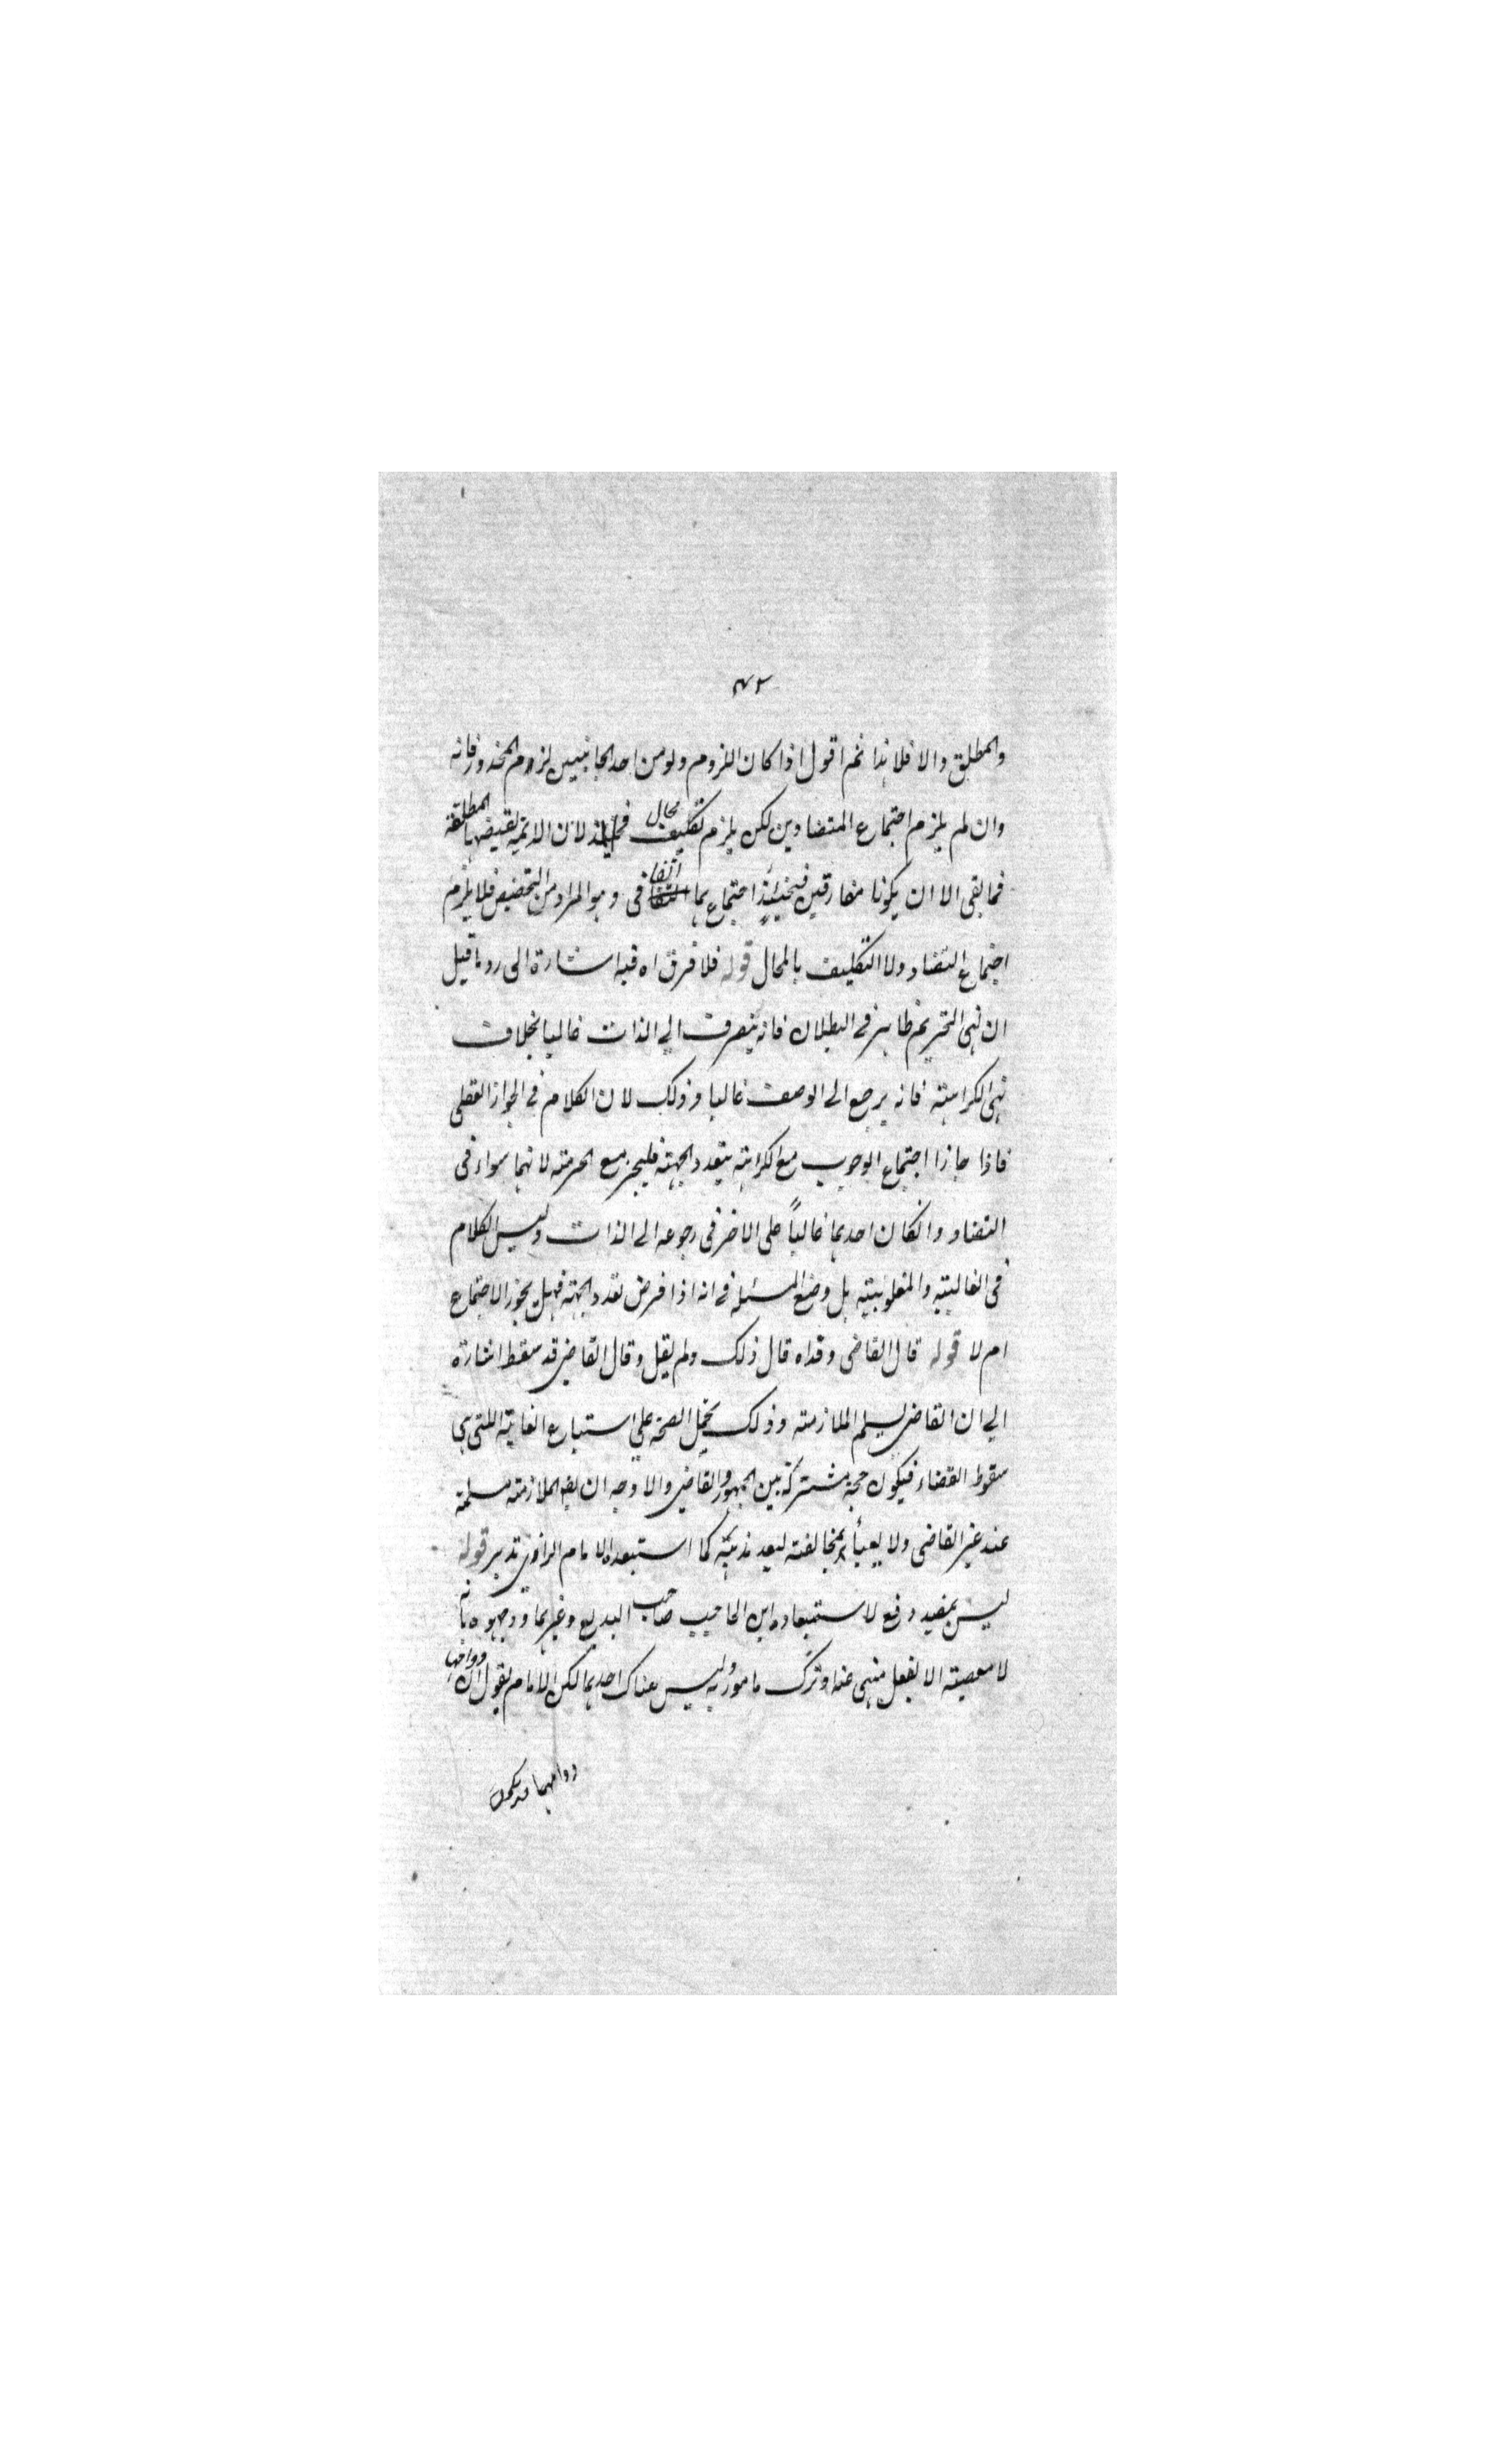 ٧٢
والمطلق والا فلا هذا ثم اقول اذا كان اللزوم ولو من احد الجانبين لزم المحذور فانه
وان لم يلزم اجتماع المتضادين لكن يلزم تكليف محال لان الدائمة نقيضها المطلقة
فما بقى الا ان يكونا مفارقين فحينئذ اجتماعهما اتفاقى وهو المراد من التخصيص فلا يلزم
اجتماع التضاد ولا التكليف بالمحال قوله فلا فرق اه فيه اشارة الى رد ما قيل
ان نهى التحريم ظاهر فى البطلان فانه ينصرف الى الذات غالبا بخلاف
نهى الكراهة فانه يرجع الى الوصف غالبا وذلك لان الكلام فى الجواز العقلى
فاذا جازا اجتماع الوجوب مع الكراهة بتعدد الجهة فليجز مع الحرمة لانهما سواء فى
التضاد وانكان احدهما غالباً على الاخر فى رجوعه الى الذات وليس الكلام
فى الغالبية والمغلوبية بل وضع المسئلة فى انه اذا فرض تعدد الجهة فهل يجوز الاجتماع
ام لا قوله قال القاضى وقداه قال ذلك ولم يقل وقال القاضى قد سقط اشارة
الى ان القاضى يسلم الملازمة وذلك يحمل الصحة على استتباع الغاية اللتى هى
سقوط القضاء فيكون حجة مشتركة بين الجمهور والقاضى والاوجه ان هذه الملازمة مسلمة
عند غير القاضى ولا يعبأ بمخالفته لبعد مذهبه كما استبعده الامام الرازى تدبر قوله
ليس ببعيد دفع لاستبعاده ابن الحاجب صاحب البديع وغيرهما ووجهوه بانه
لا معصية الا بفعل منهى عنه او ترك مامور به وليس هناك احدهما لكن الامام يقول ان دوامها
دوامهما قد يكون